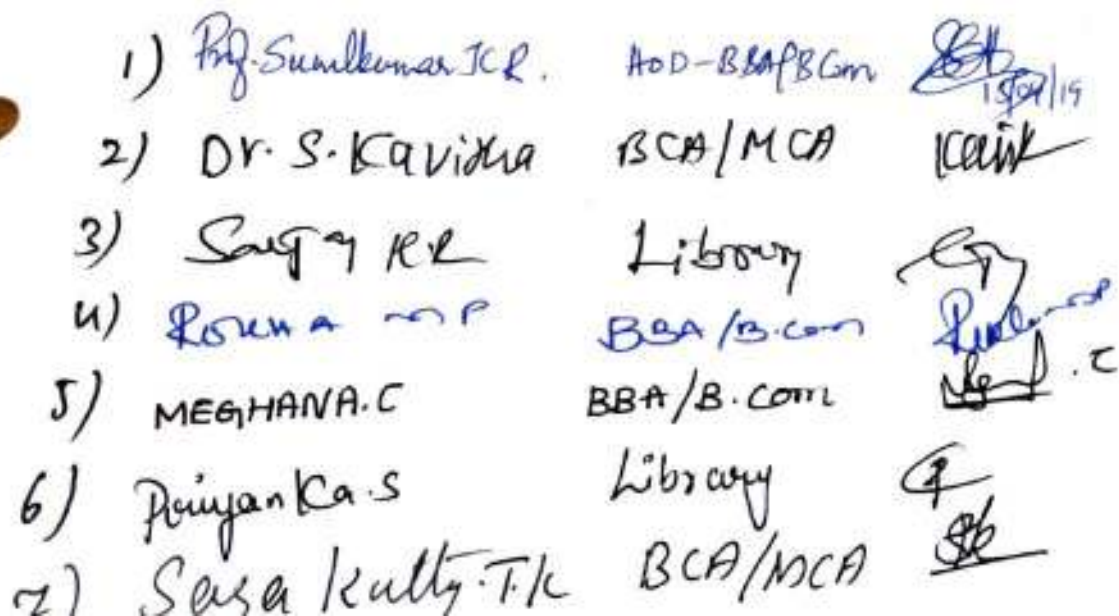 1) Prof. Sunilkumar K R. HOD-BBA/BCom 15/04/19
2) Dr. S. Kavitha BCA/MCA Kavi
3) Sanjay KR Library
4) Rekha M P BBA/B.com
5) MEGHANA.C BBA/B.Com .C
6) Priyanka.S Library
7) Sasa Kutty.T.K BCA/MCA